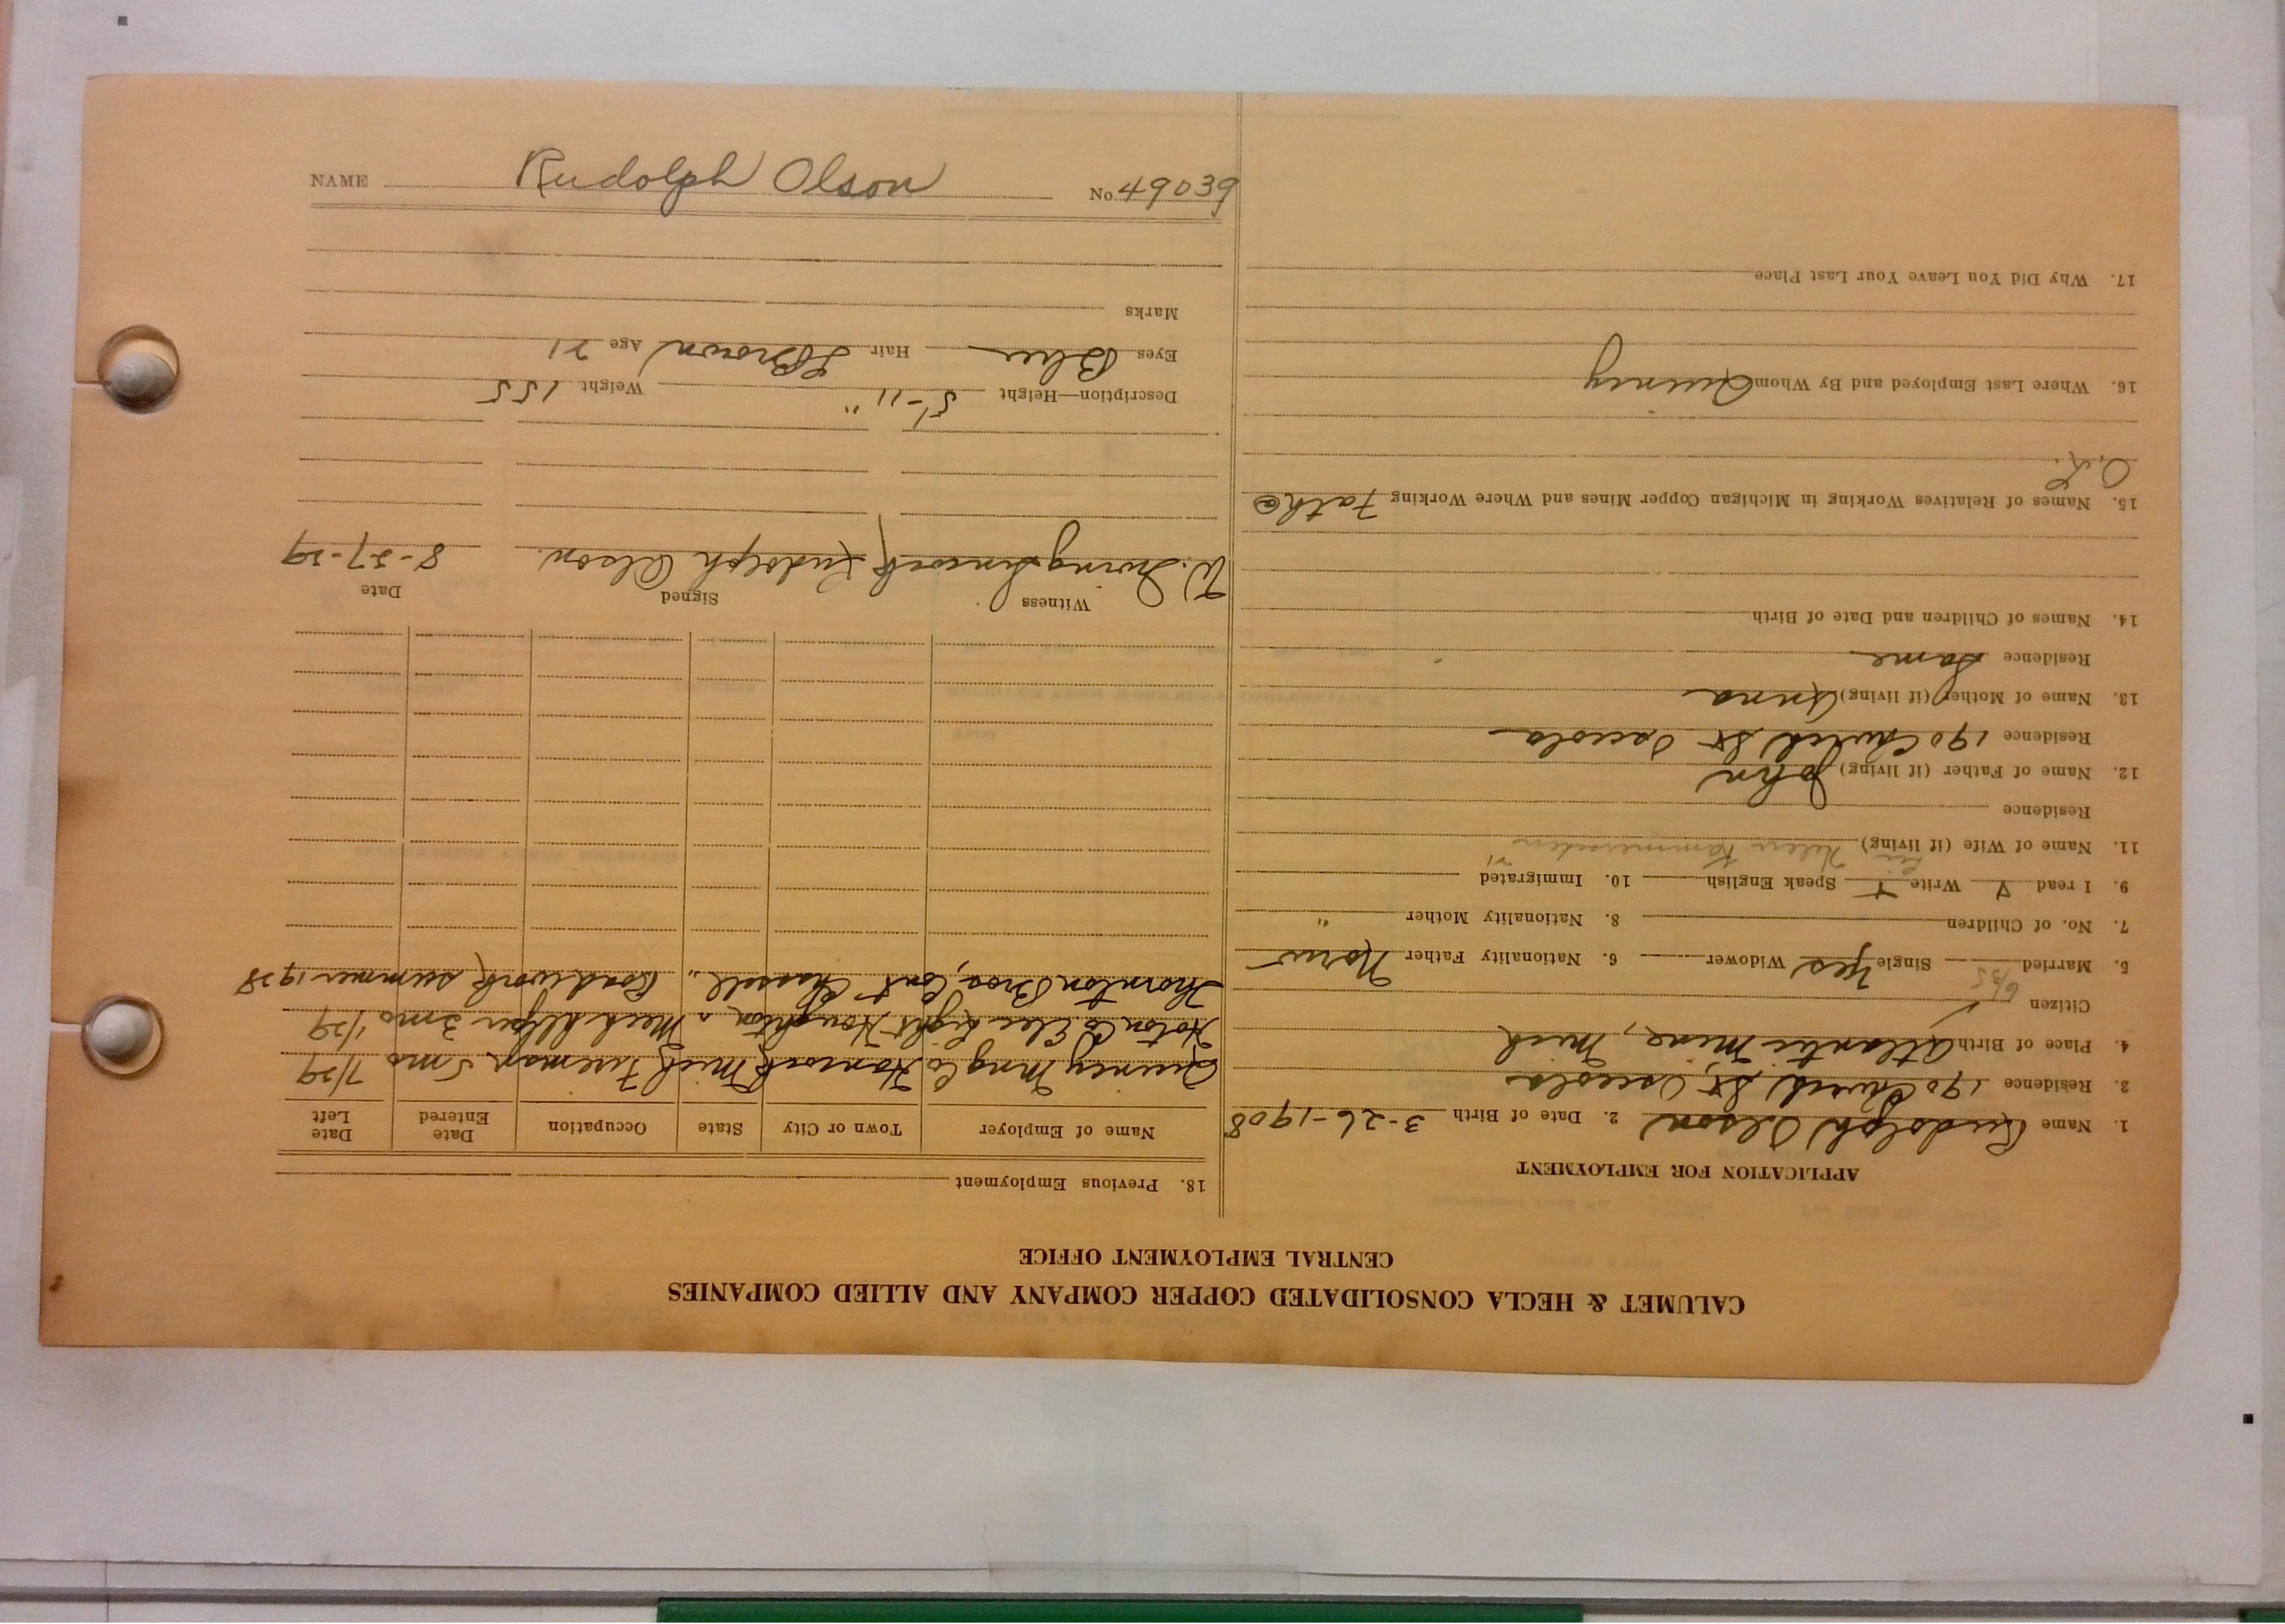 NAME Rudolph Olson No. 49039
CALUMET & HECLA CONSOLIDATED COPPER COMPANY AND ALLIED COMPANIES
CENTRAL EMPLOYMENT OFFICE
APPLICATION FOR EMPLOYMENT
1. Name Rudolph Olson 2. Date of Birth 3-26-1908
3. Residence 190 Church St. Osceola
4. Place of Birth Atlantic Mine, Mich
Citizen
5. Married Single Yes Widower 6. Nationality Father Norw
7. No. of Children 8. Nationality Mother "
9. I read Write Speak English 10. Immigrated
11. Name of Wife (if living) Helen
Residence
12. Name of Father (if living) John
Residence 190 Church St Osceola
13. Name of Mother (if living) Anna
Residence Same
14. Names of Children and Date of Birth
15. Names of Relatives Working in Michigan Copper Mines and Where Working Father
16. Where Last Employed and By Whom Quincy
17. Why Did You Leave Your Last Place
18. Previous Employment
Name of Employer Town or City State Occupation Date Entered Date Left
Quincy Mng Co Hancock Mich Fireman 5 mo 7/29
Hoton Co Elec Light Houghton " Mech helper 3 mo 1/29
Thornton Bros, Cont Chassell " Roadwork summer 1928
Witness Signed Date
W. Irving Rudolph Olson. 8-27-29
Description—Height 5'-11" Weight 155
Eyes Blue Hair Brown Age 21
Marks